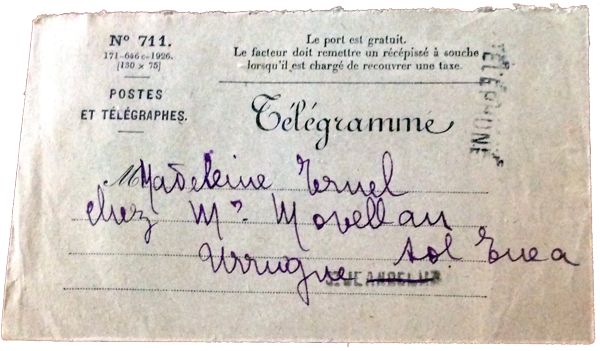 Nº 711.
171-646 c-1926.
[130 × 75]
POSTES
ET TÉLÉGRAPHES.
Le port est gratuit.
Le facteur doit remettre un récépissé à souche
lorsqu'il est chargé de recouvrer une taxe.
TÉLÉPHONE
Télégramme
M Madeleine
chez Mr Movellan
Urrugne